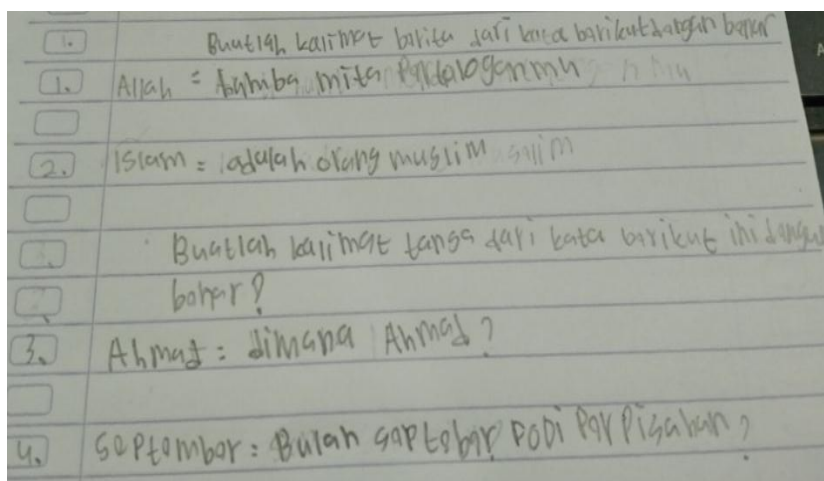 1. Buatlah kalimat birita dari kata barikut dangan banar
1. Allah = hamba mita Pardaloganmu
2. Islam = adalah orang muslim
Buatlah kalimat tansa dari kata barikut ini dangan
banar?
3. Ahmad : dimana Ahmad?
4. Saptambar : Bulan saptobar Podi Par Pisahan?